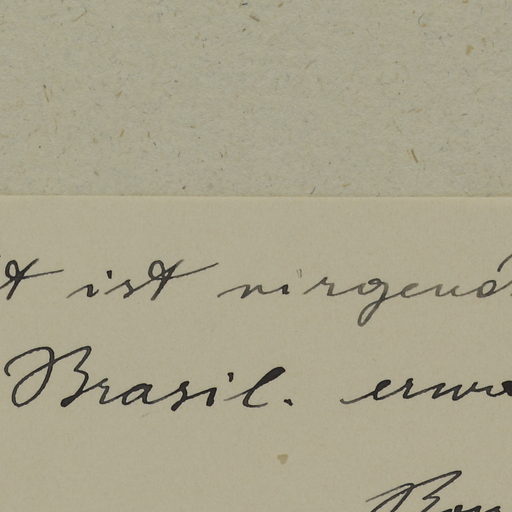 ist nirgends
Brasil. erwä